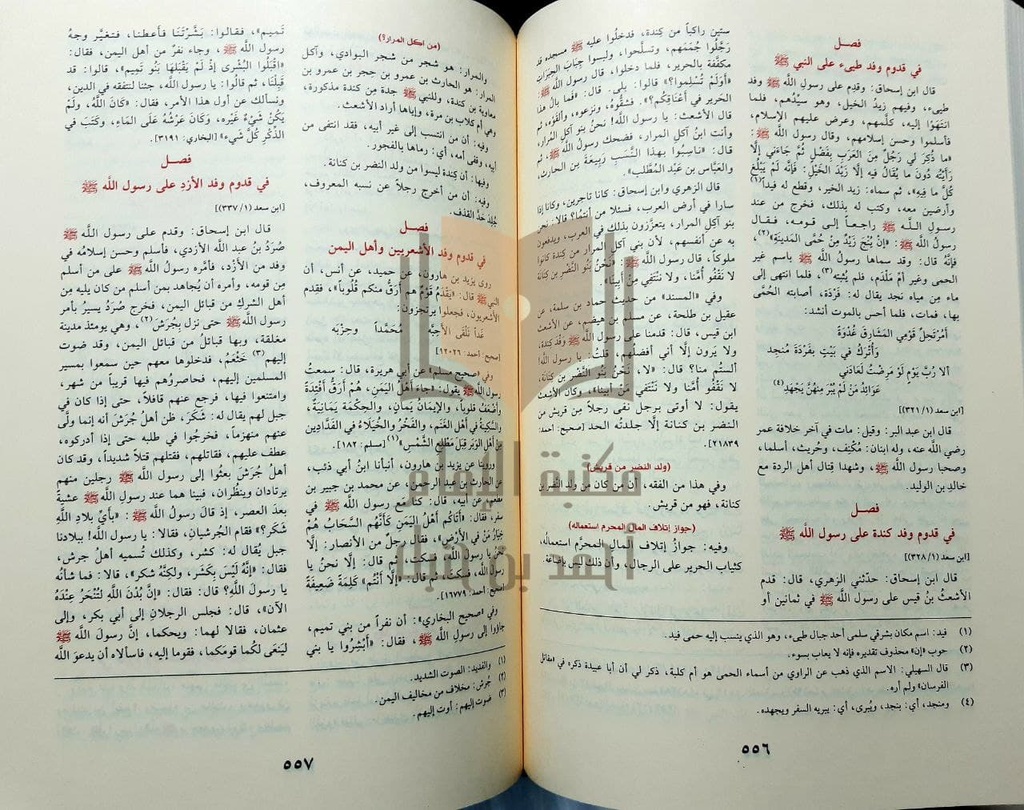 فصل
في قدوم وفد طيىء على النبي ﷺ
قال ابن إسحاق: وقدِم على رسول الله ﷺ وفد
طيىء، وفيهم زيدُ الخيل، وهو سيِّدُهم، فلما
انتهَوْا إليه، كلَّمهم، وعرض عليهم الإسلام،
فأسلموا وحسن إسلامهم، وقال رسول الله ﷺ:
«ما ذُكِرَ لي رَجُلٌ مِنَ العَرَبِ بِفَضْلٍ ثُمَّ جَاءَنِي إلَّا
رَأَيْتُه دُونَ ما يُقال فيه إلَّا زَيْدَ الخَيْلِ: فإنَّه لَمْ يَبْلُغْ
كُلَّ ما فِيهِ»، ثم سماه: زيد الخير، وقطع له فيداً(١)
وأرضين معه، وكتب له بذلك، فخرج من عند
رسول الله ﷺ راجعاً إلى قومه، فقال
رسول الله ﷺ: «إن يُنْجَ زَيْدٌ مِنْ حُمَّى المَدِينَةِ»(٢)،
فإنَّه قال: وقد سماها رسول الله ﷺ باسم غير
الحمى وغير أم مَلْدَم، فلم يُثبته(٣)، فلما انتهى إلى
ماء مِن مياه نجد يقال له: فَرْدَة، أصابته الحُمَّى
بها، فمات، فلما أحس بالموت أنشد:
أمُرْتحِلٌ قَوْمِي المَشَارِقَ غُدْوَةً
وَأُتْرَكُ في بَيْتٍ بفَرْدَةَ مُنجد
ألا رُبَّ يَوْمٍ لَوْ مَرِضْتُ لَعَادَنِي
عَوَائِدُ مَنْ لَمْ يُبرَ مِنهنَّ يَجْهَدِ(٤)
[ابن سعد (١/ ٣٢١)]
قال ابن عبد البر: وقيل: مات في آخر خلافة عمر
رضي الله عنه، وله ابنان: مُكنِف، وحُريث، أسلما،
وصحبا رسول الله ﷺ، وشهدا قِتال أهل الردة مع
خالدِ بن الوليد.
فصل
في قدوم وفد كندة على رسول الله ﷺ
[ابن سعد (١/ ٣٢٨)]
قال ابن إسحاق: حدَّثني الزهري، قال: قدم
الأشعثُ بنُ قيس على رسول الله ﷺ في ثمانين أو
ستين راكباً من كِندة، فدخلُوا عليه ﷺ مسجده قد
رجَّلُوا جُمَمَهم، وتسلَّحوا، ولبسوا جِبَابَ الحِبَرَاتِ
مكفَّفة بالحرير، فلما دخلوا، قال رسول الله ﷺ:
«أوَلَمْ تُسلِموا؟». قالوا: بلى. قال: «فَما بالُ هذا
الحَريرِ في أعْنَاقِكم؟». فشقُّوه، ونزعوه، وألقَوْه، ثم
قال الأشعث: يا رسول الله! نحنُ بنو آكِلِ المُرار،
وأنت ابنُ آكل المرار، فضحك رسولُ الله ﷺ، ثم
قال: «ناسِبُوا بهذا النَّسَبِ رَبِيعَةَ بن الحارث،
والعَبَّاس بن عَبْد المُطَّلب».
قال الزهري وابن إسحاق: كانا تاجرين، وكانا إذا
سارا في أرض العرب، فسئلا من أنتما؟ قالا: نحن
بنو آكِل المرار، يتعزَّزون بذلك في العرب، ويدفعون
به عن أنفسهم، لأن بني آكل المرار من كندة كانوا
ملوكاً، قال رسول الله ﷺ: «نحنُ بنُو النَّضْرِ بن كِنانة
لا نَقْفُو أُمَّنا، ولا نَنْتَفي مِنْ أبِينا».
وفي «المسند» من حديث حماد بن سلمة، عن
عقيل بن طلحة، عن مسلم بن هيضم، عن الأشعث
ابن قيس، قال: قدمنا على رسول الله ﷺ وفد كِندة،
ولا يرون إلَّا أني أفضلُهم، قلتُ: يا رسول الله!
ألستُم منا؟ قال: «لا، نَحْنُ بَنُو النَّضْرِ بن كِنَانة،
لا نَقْفُوا أُمَّنا وَلا نَنْتَفي مِن أبينا»، وكان الأشعث
يقول: لا أوتى برجل نفى رجلاً مِن قريش من
النضر بن كنانة إلَّا جلدتُه الحد [صحيح: أحمد:
٢١٨٣٩].
(ولد النضر من قريش)
وفي هذا من الفقه، أن من كان من ولد النضر بن
كنانة، فهو من قريش.
(جواز إتلاف المال المحرم استعماله)
وفيه: جوازُ إتلاف المالِ المحرَّمِ استعمالُه،
كثيابِ الحرير على الرجال، وأن ذلك ليس بإضاعة.
(١) فيد: اسم مكان بشرقي سلمى أحد جبال طيىء، وهو الذي ينسب إليه حمى فيد.
(٢) جوب «إن» محذوف تقديره فإنه لا يعاب بسوء.
(٣) قال السهيلي: الاسم الذي ذهب عن الراوي من أسماء الحمى هو أم كلبة، ذكر لي أن أبا عبيدة ذكره في «مقاتل
الفرسان» ولم أره.
(٤) ومنجد، أي: بنجد، ويُبرى، أي: يبريه السفر ويجهده.
٥٥٦
(من آكل المرار؟)
والمرار: هو شجر من شجر البوادي، وآكل
المرار: هو الحارث بن عمرو بن حجر بن عمرو بن
معاوية بن كندة، وللنبي ﷺ جدة مِن كندة مذكورة،
وهي أم كلاب بن مرة، وإياها أراد الأشعث.
وفيه: أن من انتسب إلى غير أبيه، فقد انتفى من
أبيه، وقفى أمه، أي: رماها بالفجور.
وفيها: أن كندة ليسوا من ولد النضر بن كنانة.
وفيه: أن من أخرج رجلاً عن نسبه المعروف،
جُلِدَ حَدَّ القذف.
فصل
في قدوم وفد الأشعريين وأهل اليمن
روى يزيد بن هارون، عن حميد، عن أنس، أن
النبي ﷺ قال: «يَقْدَمُ قَوْمٌ هم أرَقُّ منكم قُلُوباً»، فقدِم
الأشعريون، فجعلوا يرتجزون:
غَداً نَلْقَى الأحِبَّهْ مُحَمَّداً وحِزْبَه
[صحيح: أحمد: ١٢٠٢٦].
وفي «صحيح مسلم» عن أبي هريرة، قال: سمعتُ
رسول الله ﷺ يقول: «جاءَ أهْلُ اليَمَنِ، هُمْ أرَقُّ أفْئِدَةً
وأضْعَفُ قلوباً، والإيمَانُ يَمانٍ، والحِكْمَة يَمَانِيَةٌ،
والسَّكِينَةُ في أهْلِ الغَنَمِ، والفَخْرُ والخُيَلَاءُ في الفَدَّادِينَ
مِنْ أهْلِ الوَبَرِ قِبَلَ مَطْلِعِ الشَّمْسِ»(١) [مسلم: ١٨٢].
وروينا عن يزيد بن هارون، أنبأنا ابنُ أبي ذئب،
عن الحارث بن عبد الرحمن، عن محمد بن جبير بن
مطعم، عن أبيه، قال: كنا مع رسول الله ﷺ في
سفر، فقال: «أتَاكُم أهْلُ اليَمَنِ كَأنَّهم السَّحَابُ هُمْ
خِيَارُ مَنْ في الأرْضِ»، فقال رجل من الأنصار: إلَّا
نحنُ يا رسول الله، فسكت، ثم قال: إلَّا نحنُ يا
رسول الله، فسكت، ثم قال: «إلَّا أنْتُم» كَلِمَةً ضَعِيفَةً
[صحيح: أحمد: ١٦٧٧٩].
وفي «صحيح البخاري»: أن نفراً من بني تميم،
جاؤوا إلى رسولِ الله ﷺ، فقال: «أبْشِرُوا يا بني
تَمِيم»، فقالوا: بَشَّرْتَنا فأعطنا، فتغيَّر وجهُ
رسول الله ﷺ، وجاء نفرٌ من أهل اليمن، فقال:
«اقْبَلُوا البُشْرَى إذ لَمْ يَقْبَلهَا بَنُو تَميم»، قالوا: قد
قَبِلْنَا، ثم قالوا: يا رسول الله، جئنا لنتفقه في الدين،
ونسألك عن أول هذا الأمر، فقال: «كَانَ اللَّهُ، ولَمْ
يَكُنْ شَيْءٌ غَيْرَه، وَكَانَ عَرْشُهُ عَلَى المَاءِ، وكَتَبَ في
الذِّكْرِ كُلَّ شَيءٍ» [البخاري: ٣١٩١].
فصل
في قدوم وفد الأزد على رسول الله ﷺ
[ابن سعد (١/ ٣٣٧)]
قال ابن إسحاق: وقدم على رسول الله ﷺ
صُرَدُ بنُ عبد الله الأزدي، فأسلم وحسن إسلامُه في
وفد من الأزد، فأمَّره رسولُ الله ﷺ على من أسلم
مِن قومه، وأمره أن يُجاهد بمن أسلم من كان يليه مِن
أهل الشرك من قبائل اليمن، فخرج صُرَدُ يسيرُ بأمر
رسول الله ﷺ حتى نزل بِجُرَش(٢)، وهي يومئذ مدينة
مغلقة، وبها قبائلُ من قبائل اليمن، وقد ضوت
إليهم(٣) خَثْعَم، فدخلوها معهم حين سمعوا بمسيرِ
المسلمين إليهم، فحاصروهم فيها قريباً من شهر،
وامتنعوا فيها، فرجع عنهم قافلاً، حتى إذا كان في
جبل لهم يقال له: شَكَر، ظن أهلُ جُرَش أنه إنما ولَّى
عنهم منهزماً، فخرجوا في طلبه حتى إذا أدركوه،
عطف عليهم، فقاتلهم، فقتلهم قتلاً شديداً، وقد كان
أهل جُرَش بعثوا إلى رسول الله ﷺ رجلين منهم
يرتادان وينظُران، فبينا هما عند رسول الله ﷺ عشيةً
بعدَ العصر، إذ قال رسولُ الله ﷺ: «بِأيِّ بِلادِ اللَّهِ
شَكَر؟» فقام الجُرشيان، فقالا: يا رسول الله! ببلادنا
جبل يُقال له: كشر، وكذلك تُسميه أهل جرش،
فقال: «إنَّه لَيْسَ بكَشَر، ولكنَّه شَكر»، قالا: فما شأنُه
يا رسول اللَّه؟ قال: فقال: «إن بُدْنَ اللَّهِ لَتُنْحَرُ عِنْدَهُ
الآن»، قال: فجلس الرجلان إلى أبي بكر، وإلى
عثمان، فقالا لهما: ويحكما، إنَّ رسول الله ﷺ
لَيَنعَى لكُما قومَكما، فقوما إليه، فاسألاه أن يدعوَ اللَّه
(١) والفديد: الصوت الشديد.
(٢) جُرش: مخلاف من مخاليف اليمن.
(٣) ضوت إليهم: أوت إليهم.
٥٥٧
مكتبة الإمام
أحمد بن حنبل